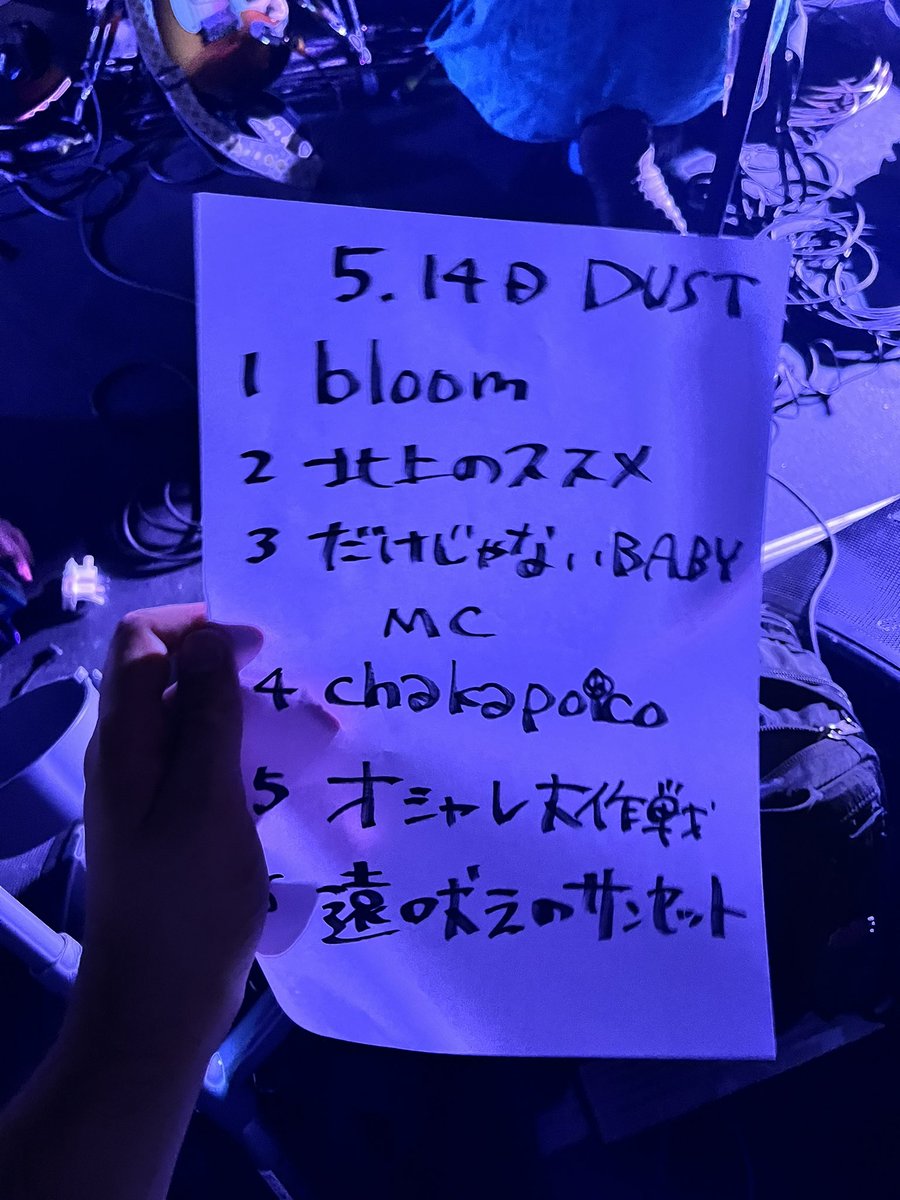 5.14日 DUST
1 bloom
2 北上のススメ
3 だけじゃないBABY
MC
4 chakapoco
5 オシャレ大作戦
遠吠えのサンセット